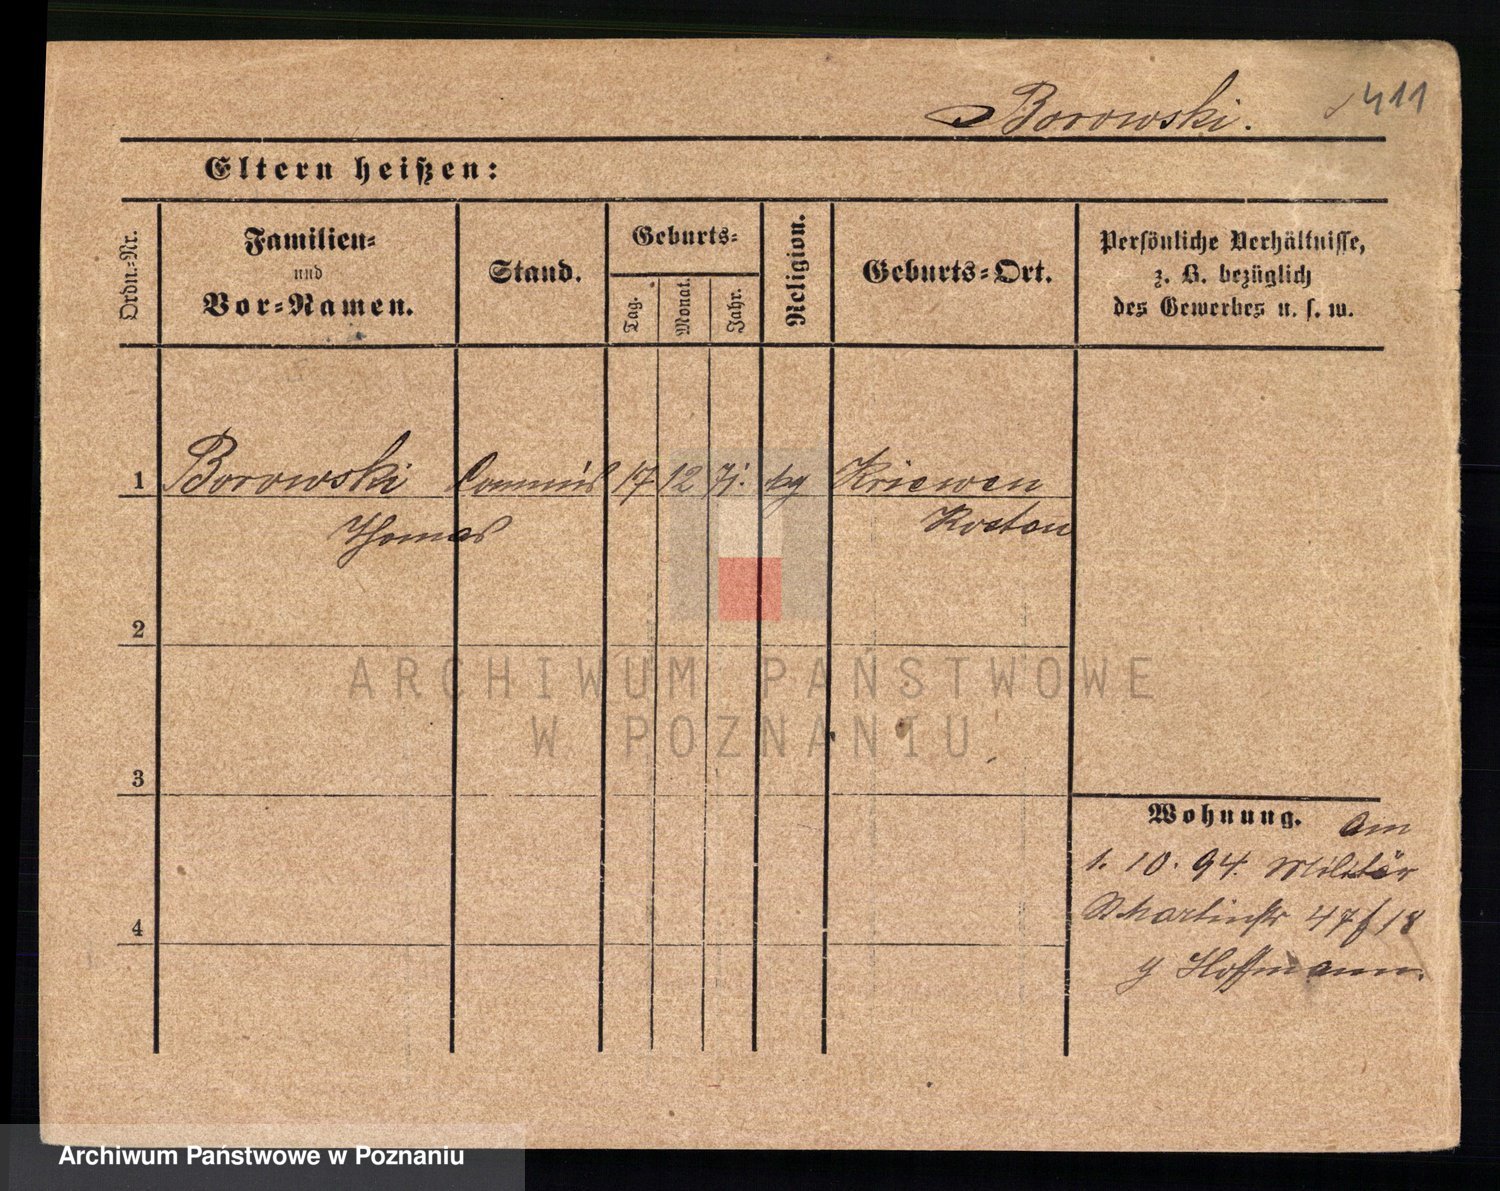 Borowski.
411
Eltern heißen:
Ordn.-Nr.
Familien-
und
Vor-Namen.
Stand.
Geburts-
Tag.
Monat.
Jahr.
Religion.
Geburts-Ort.
Persönliche Verhältnisse,
z. B. bezüglich
des Gewerbes u. s. w.
1 Borowski Commis 17 12 71. kg Kriewen
Thomas Kosten
2
3
4
Wohnung. Am
1. 10. 94. Militär
St Martinstr 47 f 18
Hoffmann.
ARCHIWUM PAŃSTWOWE
W POZNANIU
Archiwum Państwowe w Poznaniu